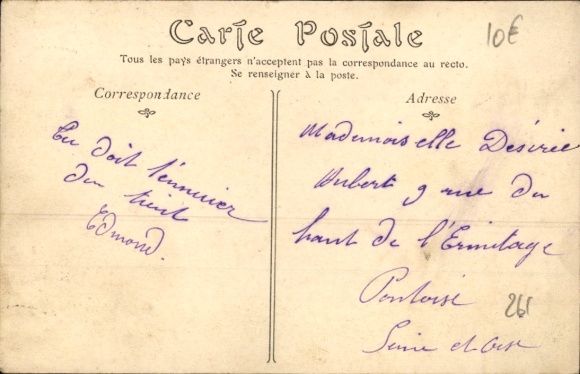 Carte Postale
10€
Tous les pays étrangers n'acceptent pas la correspondance au recto.
Se renseigner à la poste.
Correspondance
Tu doit t'ennuier
du
Edmond.
Adresse
Mademoiselle Désirée
Hubert 9 rue du
haut de l'Ermitage
Pontoise
Seine et Oise